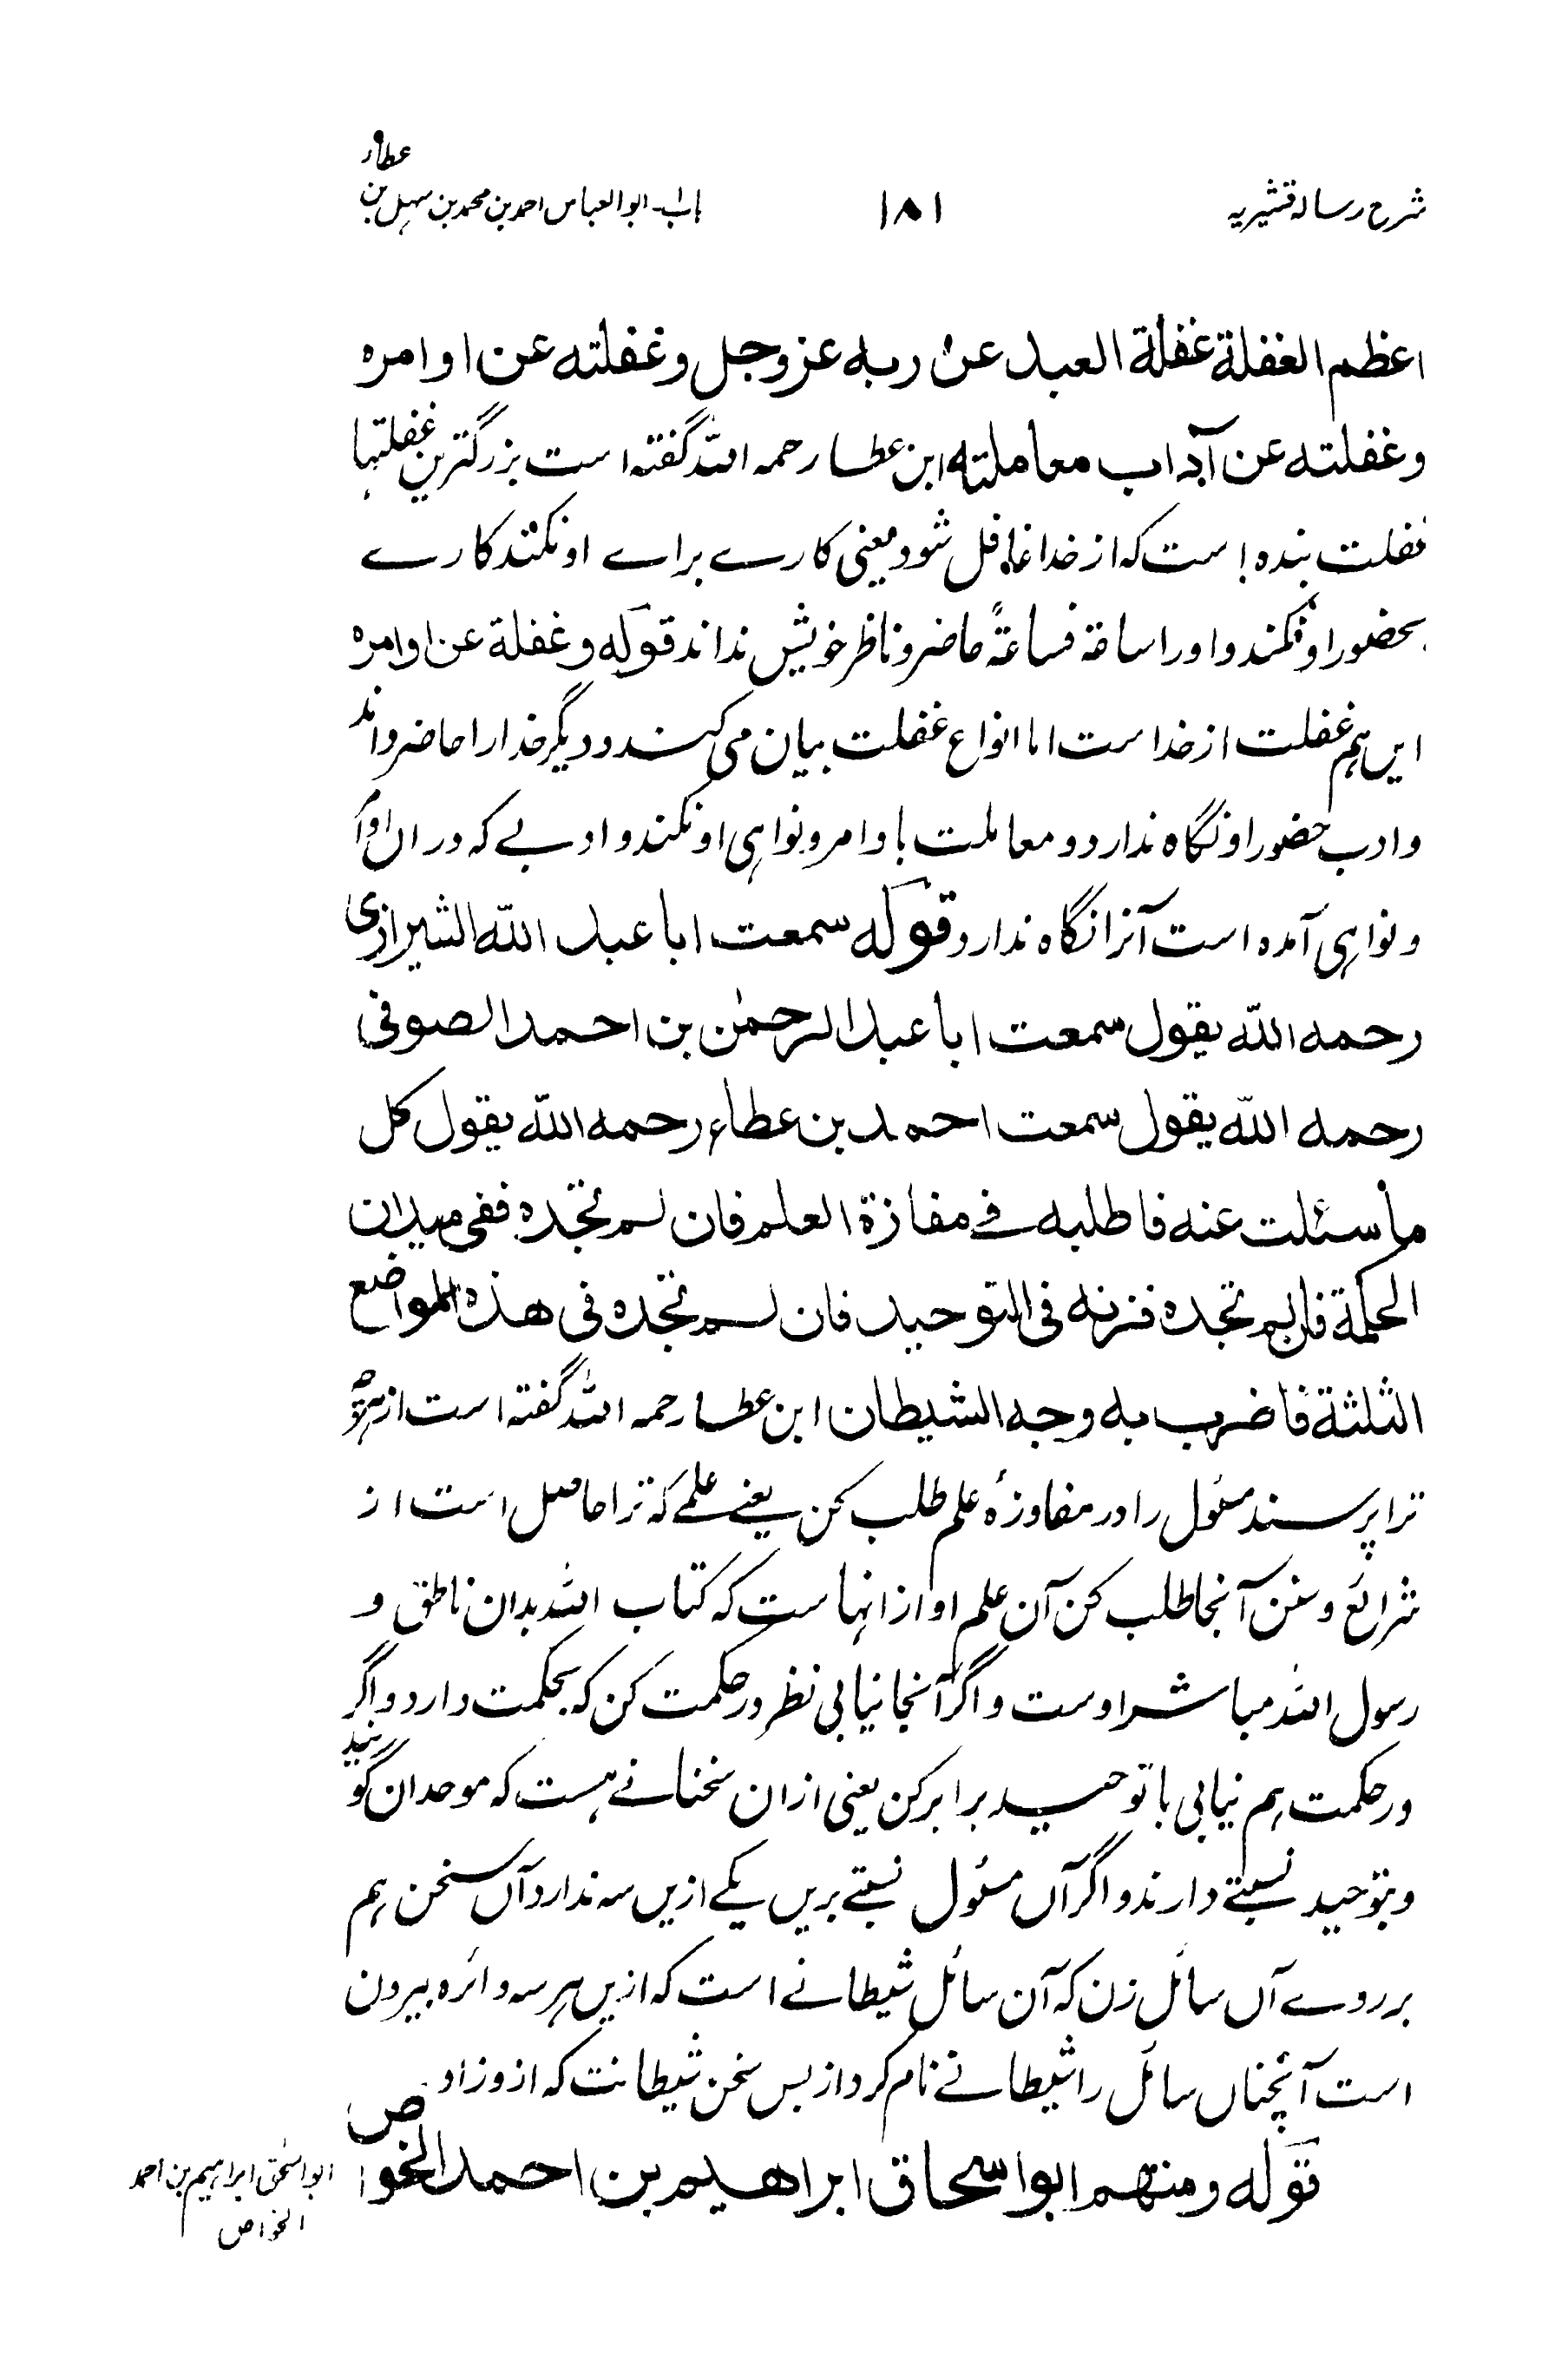 شرح رسالہ قشیریہ ۱۸۱ باب ابو العباس احمد بن محمد بن سہل بن عطار
اعظم الغفلة غفلة العبد عن ربه عز وجل وغفلته عن اوامره
وغفلته عن آداب معاملته ابن عطا رحمہ اللہ گفتہ است بزرگترین غفلتہا
غفلت بندہ است کہ از خدا غافل شود یعنی کارے براے او نکند کارے
بحضور او نکند و اورا ساعة فساعةً حاضر و ناظر خویش نداند قوله وغفلة عن اوامره
ایں ہم غفلت از خداست اما انواع غفلت بیان می کند و دیگر خدا را حاضر داند
و ادب حضور او نگاہ ندارد و معاملت با وامر و نواہی او نکند و ادبے کہ در ان اوامر
و نواہی آمدہ است آنرا نگاہ ندارد قوله سمعت ابا عبد الله الشیرازی
رحمه الله یقول سمعت ابا عبد الرحمٰن بن احمد الصوفی
رحمه الله یقول سمعت احمد بن عطاء رحمه الله یقول کل
ما سئلت عنه فاطلبه فے مفازة العلم فان لم تجده ففی میدان
الحکمة فان لم تجده فزنه فی التوحید فان لم تجده فی هذه المواضع
الثلثة فاضرب به وجه الشیطان ابن عطا رحمہ اللہ گفتہ است از ہرچہ
ترا پرسند مسئول را در مفاوزۂ علم طلب کن یعنے علمے کہ ترا حاصل است از
شرائع و سنن آنجا طلب کن آن علم او از انہاست کہ کتاب اللہ بدان ناطق و
رسول اللہ مباشر اوست و اگر آنجا نیابی نظر در حکمت کن کہ بحکمت دارد و اگر
در حکمت ہم نیابی با توحید برابر کن یعنی ازان سخنانے ہست کہ موحدان گویند
و بتوحید نسبتے دارند و اگر آں مسئول نسبتے بریں یکے ازیں سہ ندارد آں سخن ہم
بر روے آں سائل زن کہ آن سائل شیطانے است کہ ازیں ہر سہ دائرہ بیرون
است آنچناں سائل را شیطانے نام کرد از بس سخن شیطانت کہ ازو زاد
قوله ومنهم ابو اسحاق ابراهیم بن احمد الخواص
ابو اسحٰق ابراہیم بن احمد
الخواص